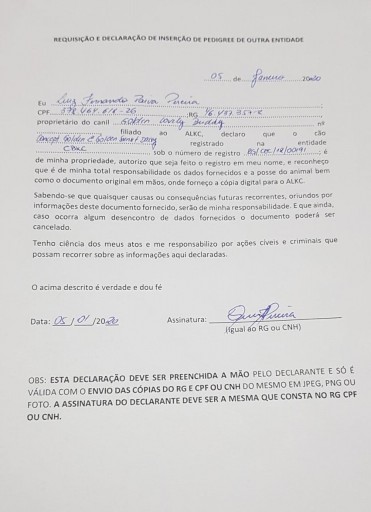 REQUISIÇÃO E DECLARAÇÃO DE INSERÇÃO DE PEDIGREE DE OUTRA ENTIDADE
05 de Janeiro 2020
Eu Luiz Fernando Paiva Pereira
CPF RG
proprietário do canil Golden Lovely Buddy nº
filiado ao ALKC, declaro que o cão
registrado na entidade
CBKC sob o número de registro é
de minha propriedade, autorizo que seja feito o registro em meu nome, e reconheço
que é de minha total responsabilidade os dados fornecidos e a posse do animal bem
como o documento original em mãos, onde forneço a cópia digital para o ALKC.
Sabendo-se que quaisquer causas ou consequências futuras recorrentes, oriundos por
informações deste documento fornecido, serão de minha responsabilidade. E que ainda,
caso ocorra algum desencontro de dados fornecidos o documento poderá ser
cancelado.
Tenho ciência dos meus atos e me responsabilizo por ações cíveis e criminais que
possam recorrer sobre as informações aqui declaradas.
O acima descrito é verdade e dou fé
Data: 05/01/2020 Assinatura:
(Igual ao RG ou CNH)
OBS: ESTA DECLARAÇÃO DEVE SER PREENCHIDA A MÃO PELO DECLARANTE E SÓ É
VÁLIDA COM O ENVIO DAS CÓPIAS DO RG E CPF OU CNH DO MESMO EM JPEG, PNG OU
FOTO. A ASSINATURA DO DECLARANTE DEVE SER A MESMA QUE CONSTA NO RG CPF
OU CNH.